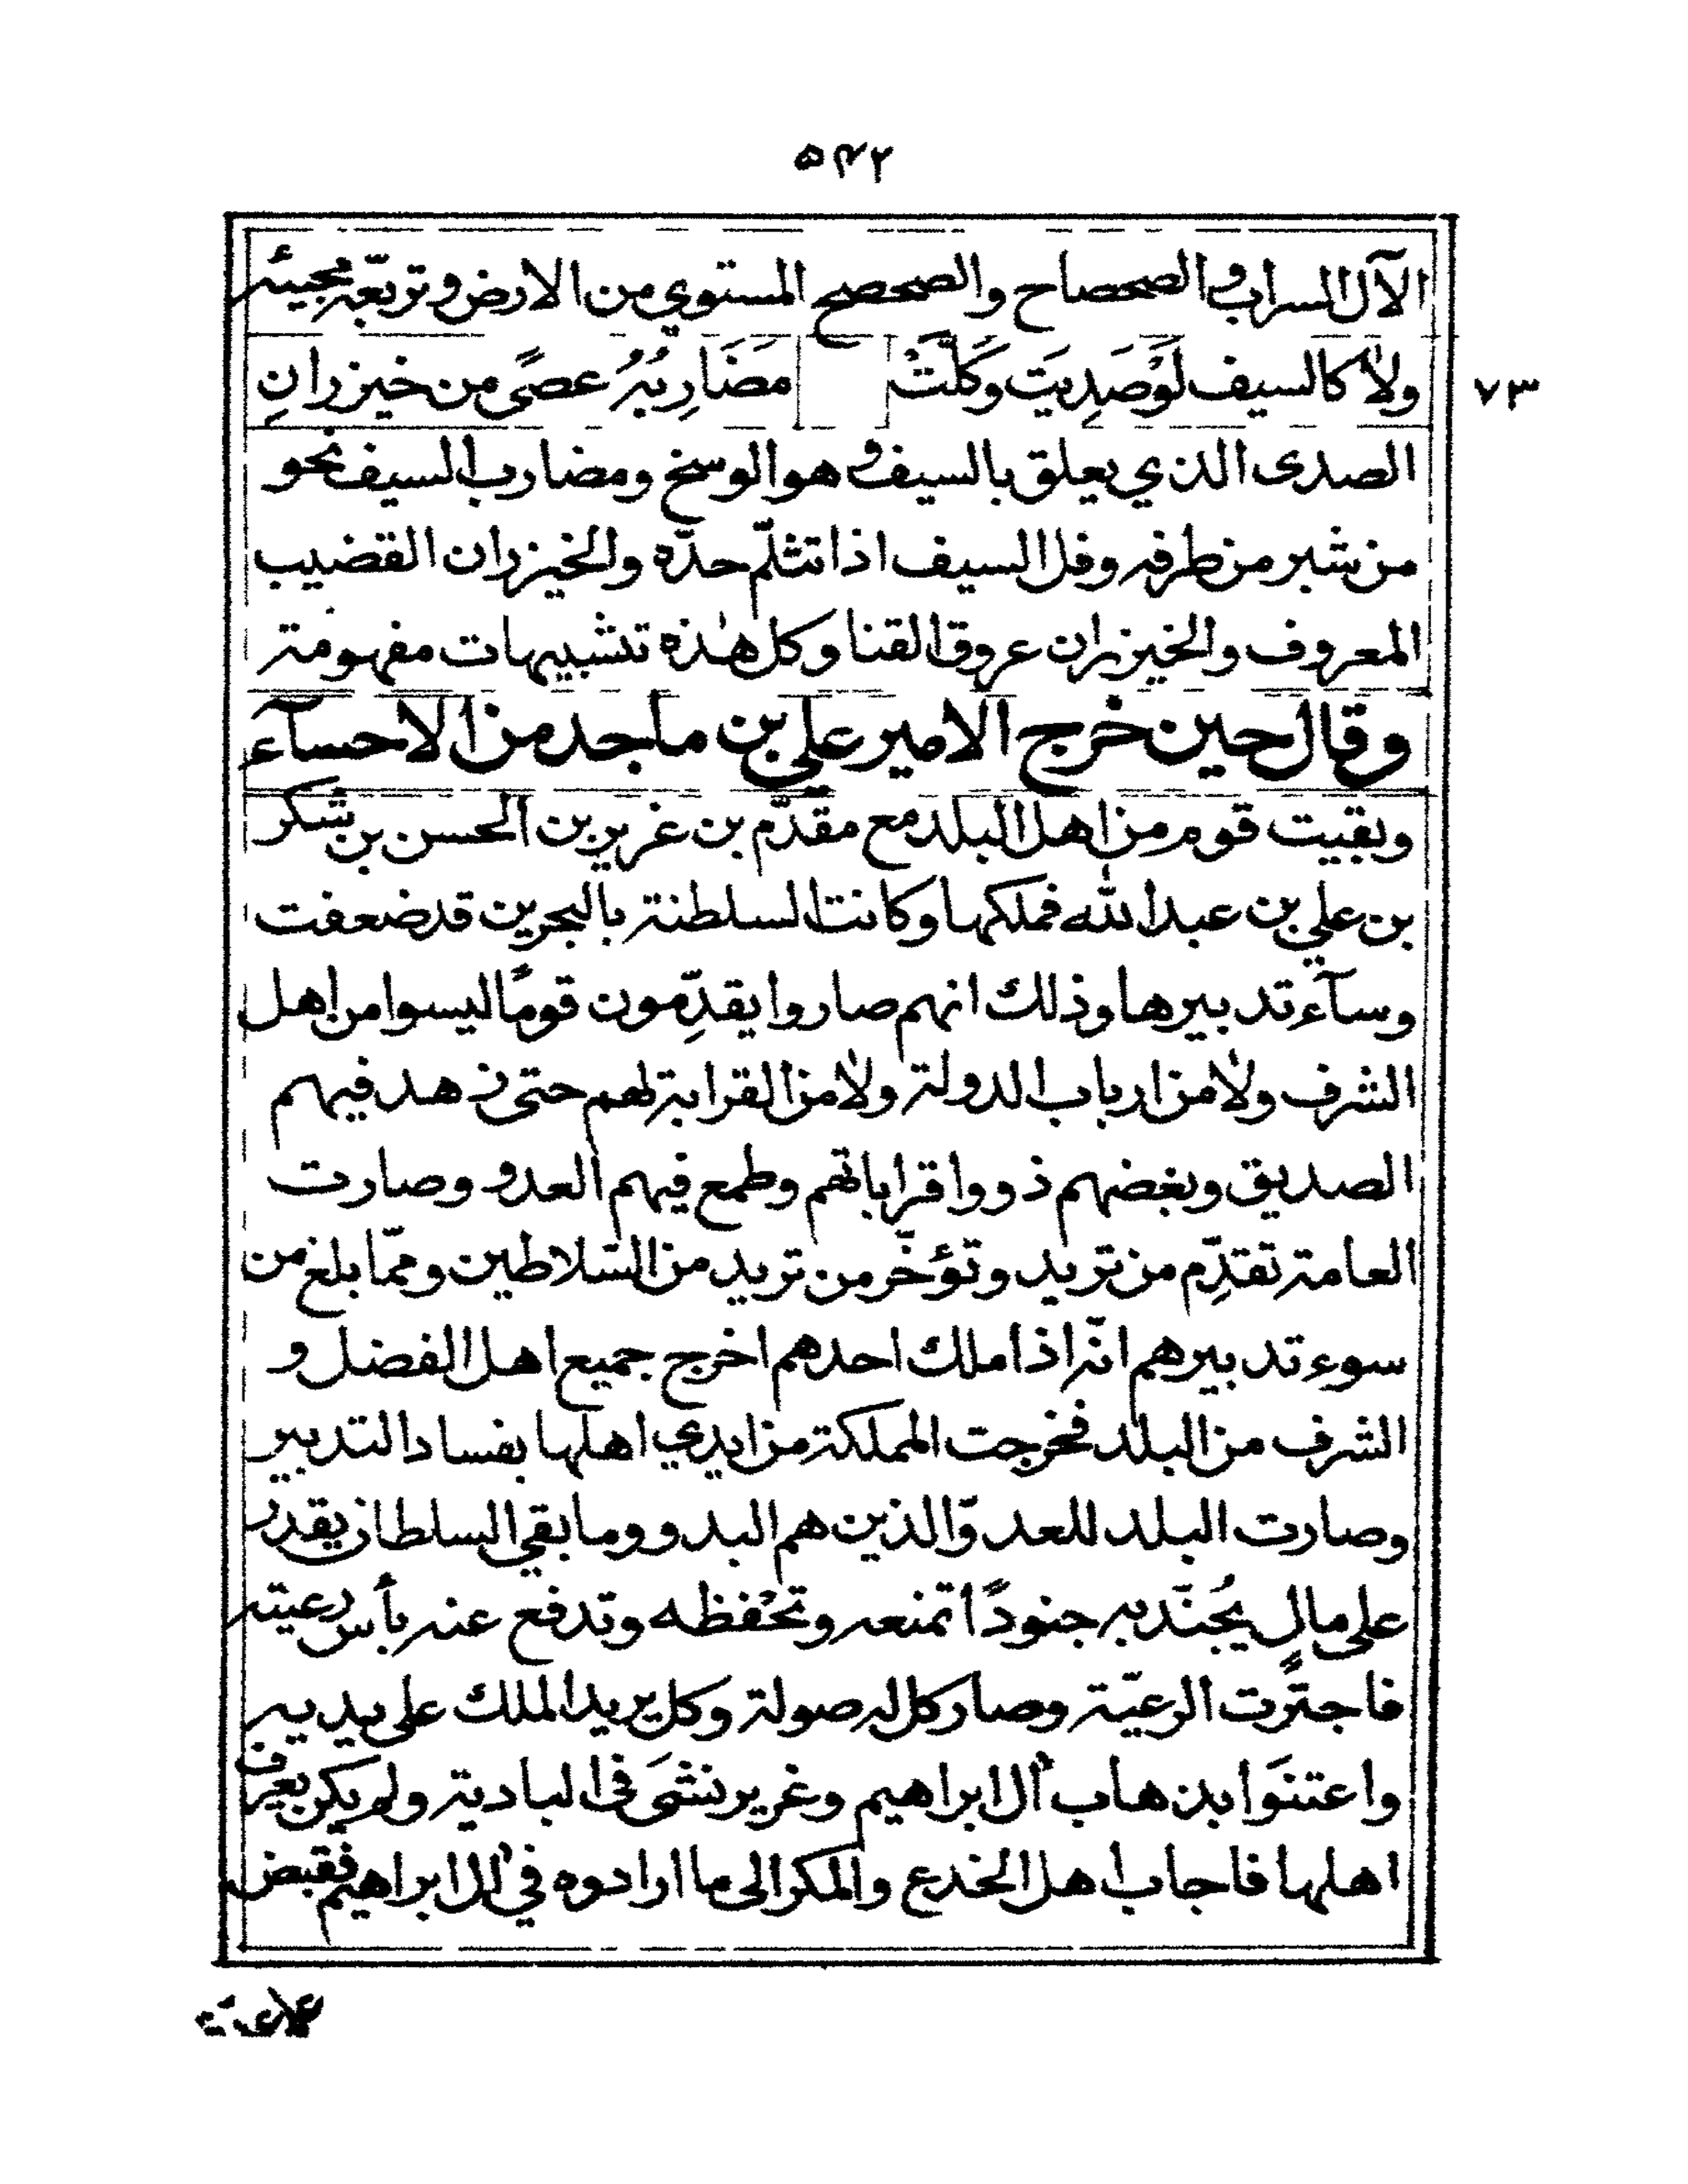 ٥٤٢
الآل السراب والصحصاح والصحصح المستوي من الارض وتريّعه مجيئه
ولاٰ كالسيف لَوْصَدِيَتَ وَكَلَّتْ مَضَارِبُهُ عصًى من خيزرانِ
٧٣
الصدى الذي يعلق بالسيف و هو الوسخ ومضارب السيف نحو
من شبر من طرفه وفل السيف اذا تثلّم حدّه والخيزران القضيب
المعروف والخيزران عروق القنا وكل هٰذه تشبيهات مفهومة
وقال حين خرج الامير علي بن ماجد من الاحسآء
وبقيت قوم من اهل البلد مع مقدّم بن غرير بن الحسن بن شكر
بن علي بن عبد الله فملكها وكانت السلطنة بالبحرين قد ضعفت
وسآء تدبيرها وذلك انهم صاروا يقدِّمون قومًا ليسوا من اهل
الشرف ولاٰ من ارباب الدولة ولاٰ من القرابة لهم حتى زهد فيهم
الصديق وبغضهم ذووا قراباتهم وطمع فيهم العدو وصارت
العامة تقدِّم من تريد وتؤخّر من تريد من السّلاطين وممّا بلغ من
سوء تدبيرهم انّه اذا ملك احدهم اخرج جميع اهل الفضل و
الشرف من البلد فخرجت المملكة من ايدي اهلها بفساد التدبير
وصارت البلد للعدوّ الذين هم البدو وما بقي السلطان يقدر
على مالٍ يُجنّد به جنودًا تمنعه وتحْفظه وتدفع عنه بأس رعيته
فاجترّت الرعيّة وصار كل له صولة وكل يريد الملك على يديه
واعتنَوا بذهاب آل ابراهيم وغرير نشَى في البادية ولم يكن يعرف
اهلها فاجاب اهل الخدع والمكر الى ما ارادوه في آل ابراهيم فقبض